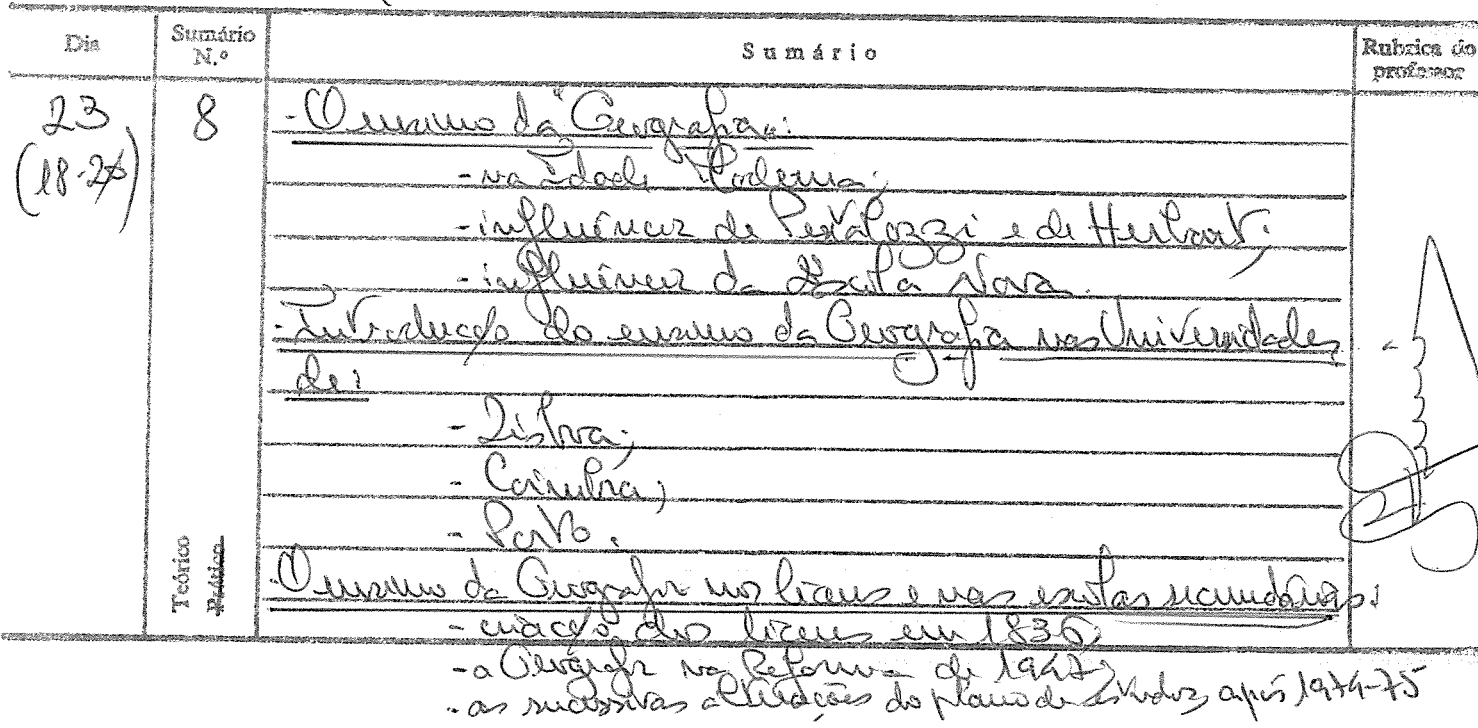 Dia Sumário N.º Sumário Rubrica do professor
23 8 - O ensino da "Geografia":
(18-20) - na Idade Moderna;
- influência de Pestalozzi e de Herbart;
- influência da Escola Nova.
- Introdução do ensino da Geografia nas Universidades
de:
- Lisboa;
- Coimbra;
- Porto.
Teórico Prático
- O ensino da Geografia nos liceus e nas escolas secundárias:
- criação dos liceus em 1836;
- a Geografia na Reforma de 1947;
- as sucessivas alterações do plano de estudos após 1974-75